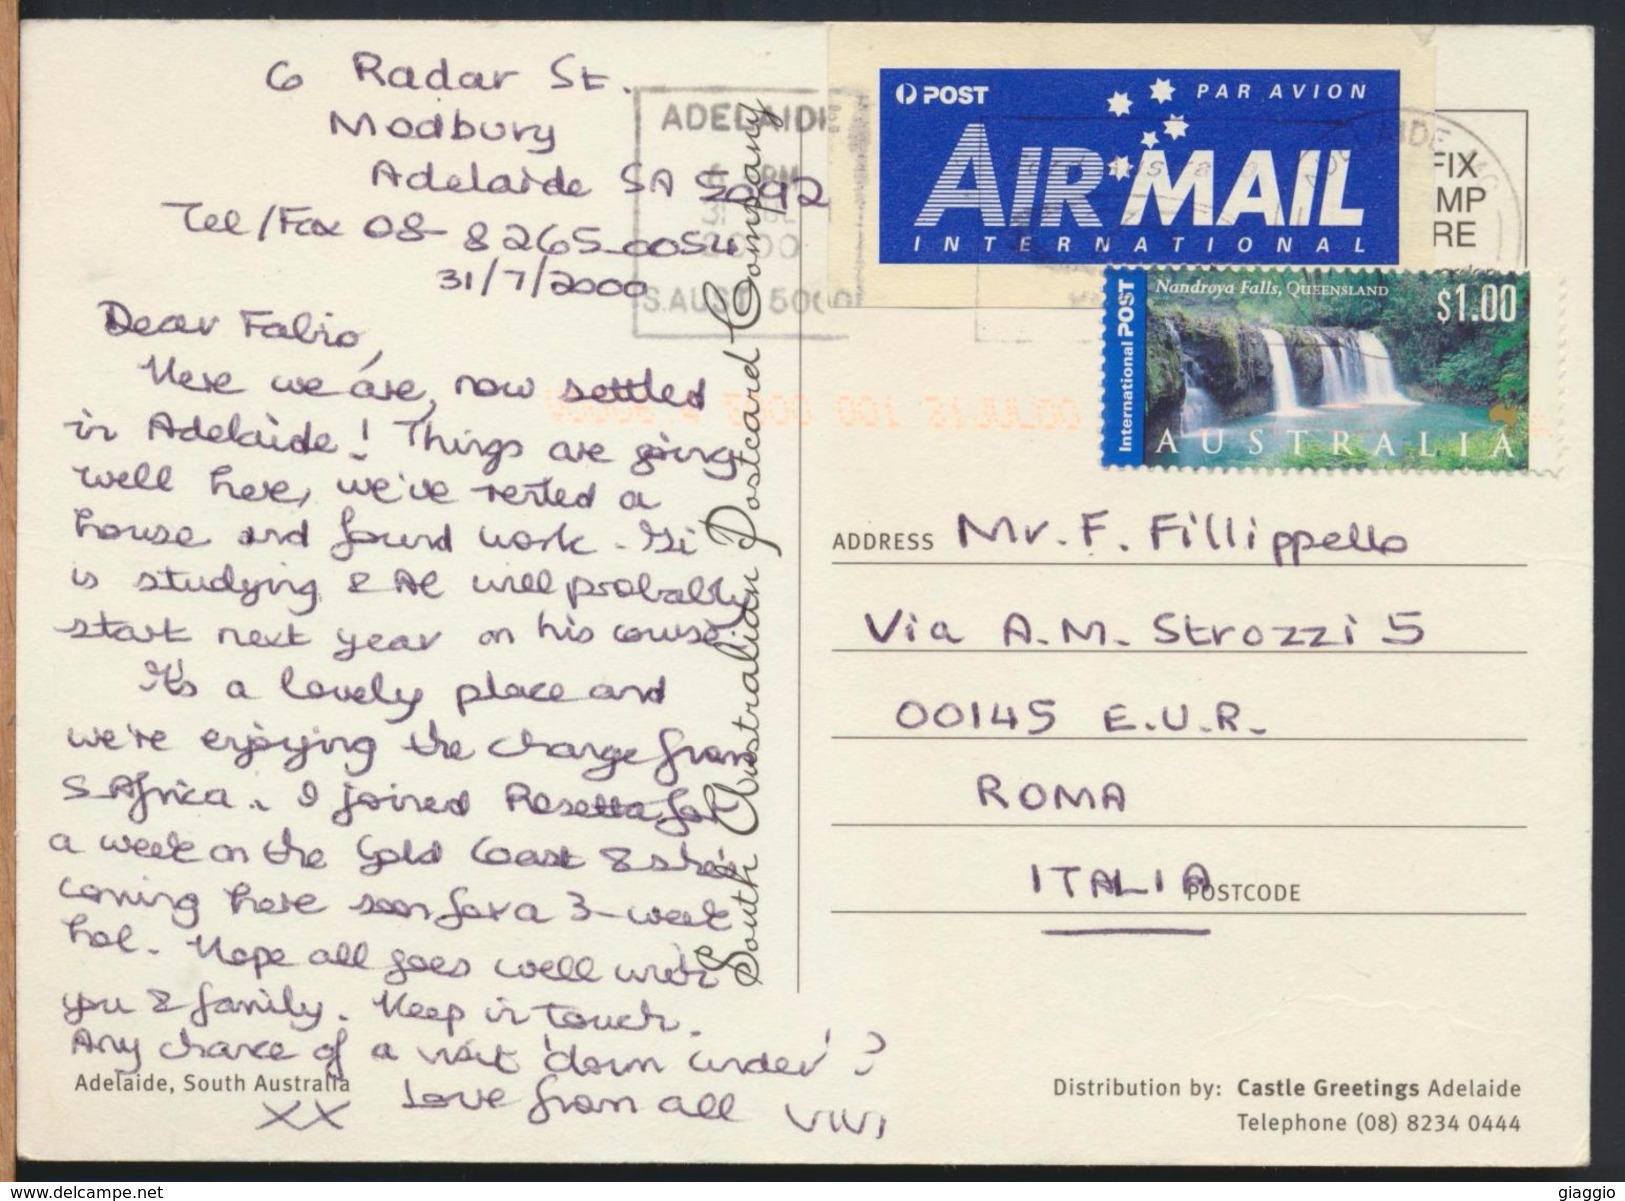 6 Radar St.
Modbury
Adelaide SA 5092
Tel/Fax 08-8265-0054
31/7/2000
Dear Fabio,
Here we are, now settled
in Adelaide! Things are going
well here, we've rented a
house and found work. Gi
is studying & Al will probably
start next year on his course.
It's a lovely place and
we're enjoying the change from
S. Africa. I joined Rosetta for
a week on the Gold Coast & she's
coming here soon for a 3-week
hol. Hope all goes well with
you & family. Keep in touch.
Any chance of a visit 'down under'?
Love from all
XX Vivi
Adelaide, South Australia
South Australian Postcard Company
ADELAIDE
2000
S.AUST 5000
POST
PAR AVION
AIR MAIL
INTERNATIONAL
FIX
MP
RE
International POST
Nandroya Falls, QUEENSLAND
$1.00
AUSTRALIA
ADDRESS Mr. F. Fillippello
Via A.M. Strozzi 5
00145 E.U.R.
ROMA
ITALIA
POSTCODE
Distribution by: Castle Greetings Adelaide
Telephone (08) 8234 0444
delcampe.net
giaggio